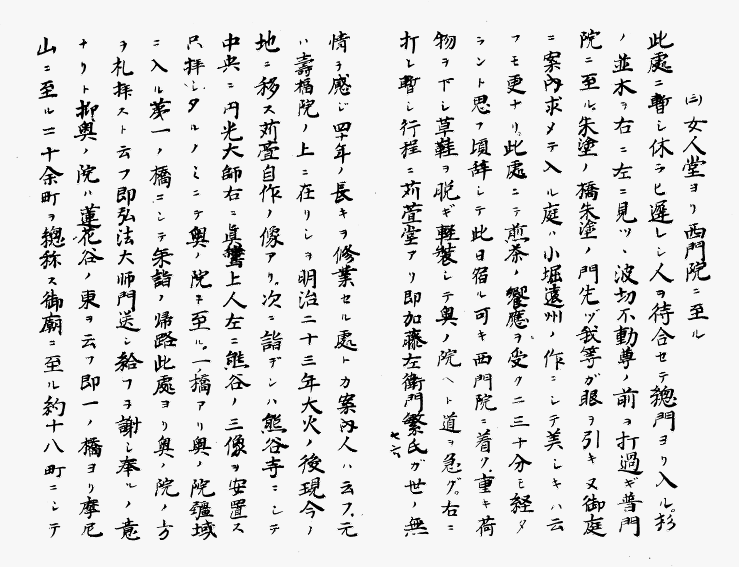 (三)女人堂ヨリ西門院ニ至ル
此處ニ暫シ休ラヒ遲レシ人ヲ待合セテ總門ヨリ入ル。杉
ノ並木ヲ右ニ左ニ見ツヽ波切不動尊ノ前ヲ打過ギ普門
院ニ至ル朱塗ノ橋朱塗ノ門先ヅ我等ガ眼ヲ引キ又御庭
ニ案內求メテ入ル庭ハ小堀遠州ノ作ニシテ美シキハ云
フモ更ナリ。此處ニテ煎茶ノ饗應ヲ受ク二三十分モ経タ
ラント思フ頃辞シテ此日宿ル可キ西門院ニ着ク。重キ荷
物ヲ下シ草鞋ヲ脱ギ軽裝シテ奥ノ院ヘト道ヲ急グ。右ニ
打レ暫シ行程ニ苅萱堂アリ即加藤左衛門繁氏ガ世ノ無
七六
情ヲ感ジ四十年ノ長キヲ修業セル處トカ案內人ハ云フ。元
ハ壽福院ノ上ニ在リシヲ明治二十三年大火ノ後現今ノ
地ニ移ス苅萱自作ノ像アリ。次ニ詣デシハ熊谷寺ニシテ
中央ニ円光大師右ニ眞鸞上人左ニ熊谷ノ三像ヲ安置ス
只拝シタルノミニテ奥ノ院ニ至ル。一ノ橋アリ奥ノ院疆域
ニ入ル第一ノ橋ニシテ朱詣ノ帰路此處ヨリ奥ノ院ノ方
ヲ礼拝スト云フ即弘法大師門送シ給フヲ謝シ奉ルノ意
ナリト抑奥ノ院ハ蓮花谷ノ東ヲ云フ即一ノ橋ヨリ摩尼
山ニ至ル二十余町ヲ總称ス御廟ニ至ル約十八町ニシテ